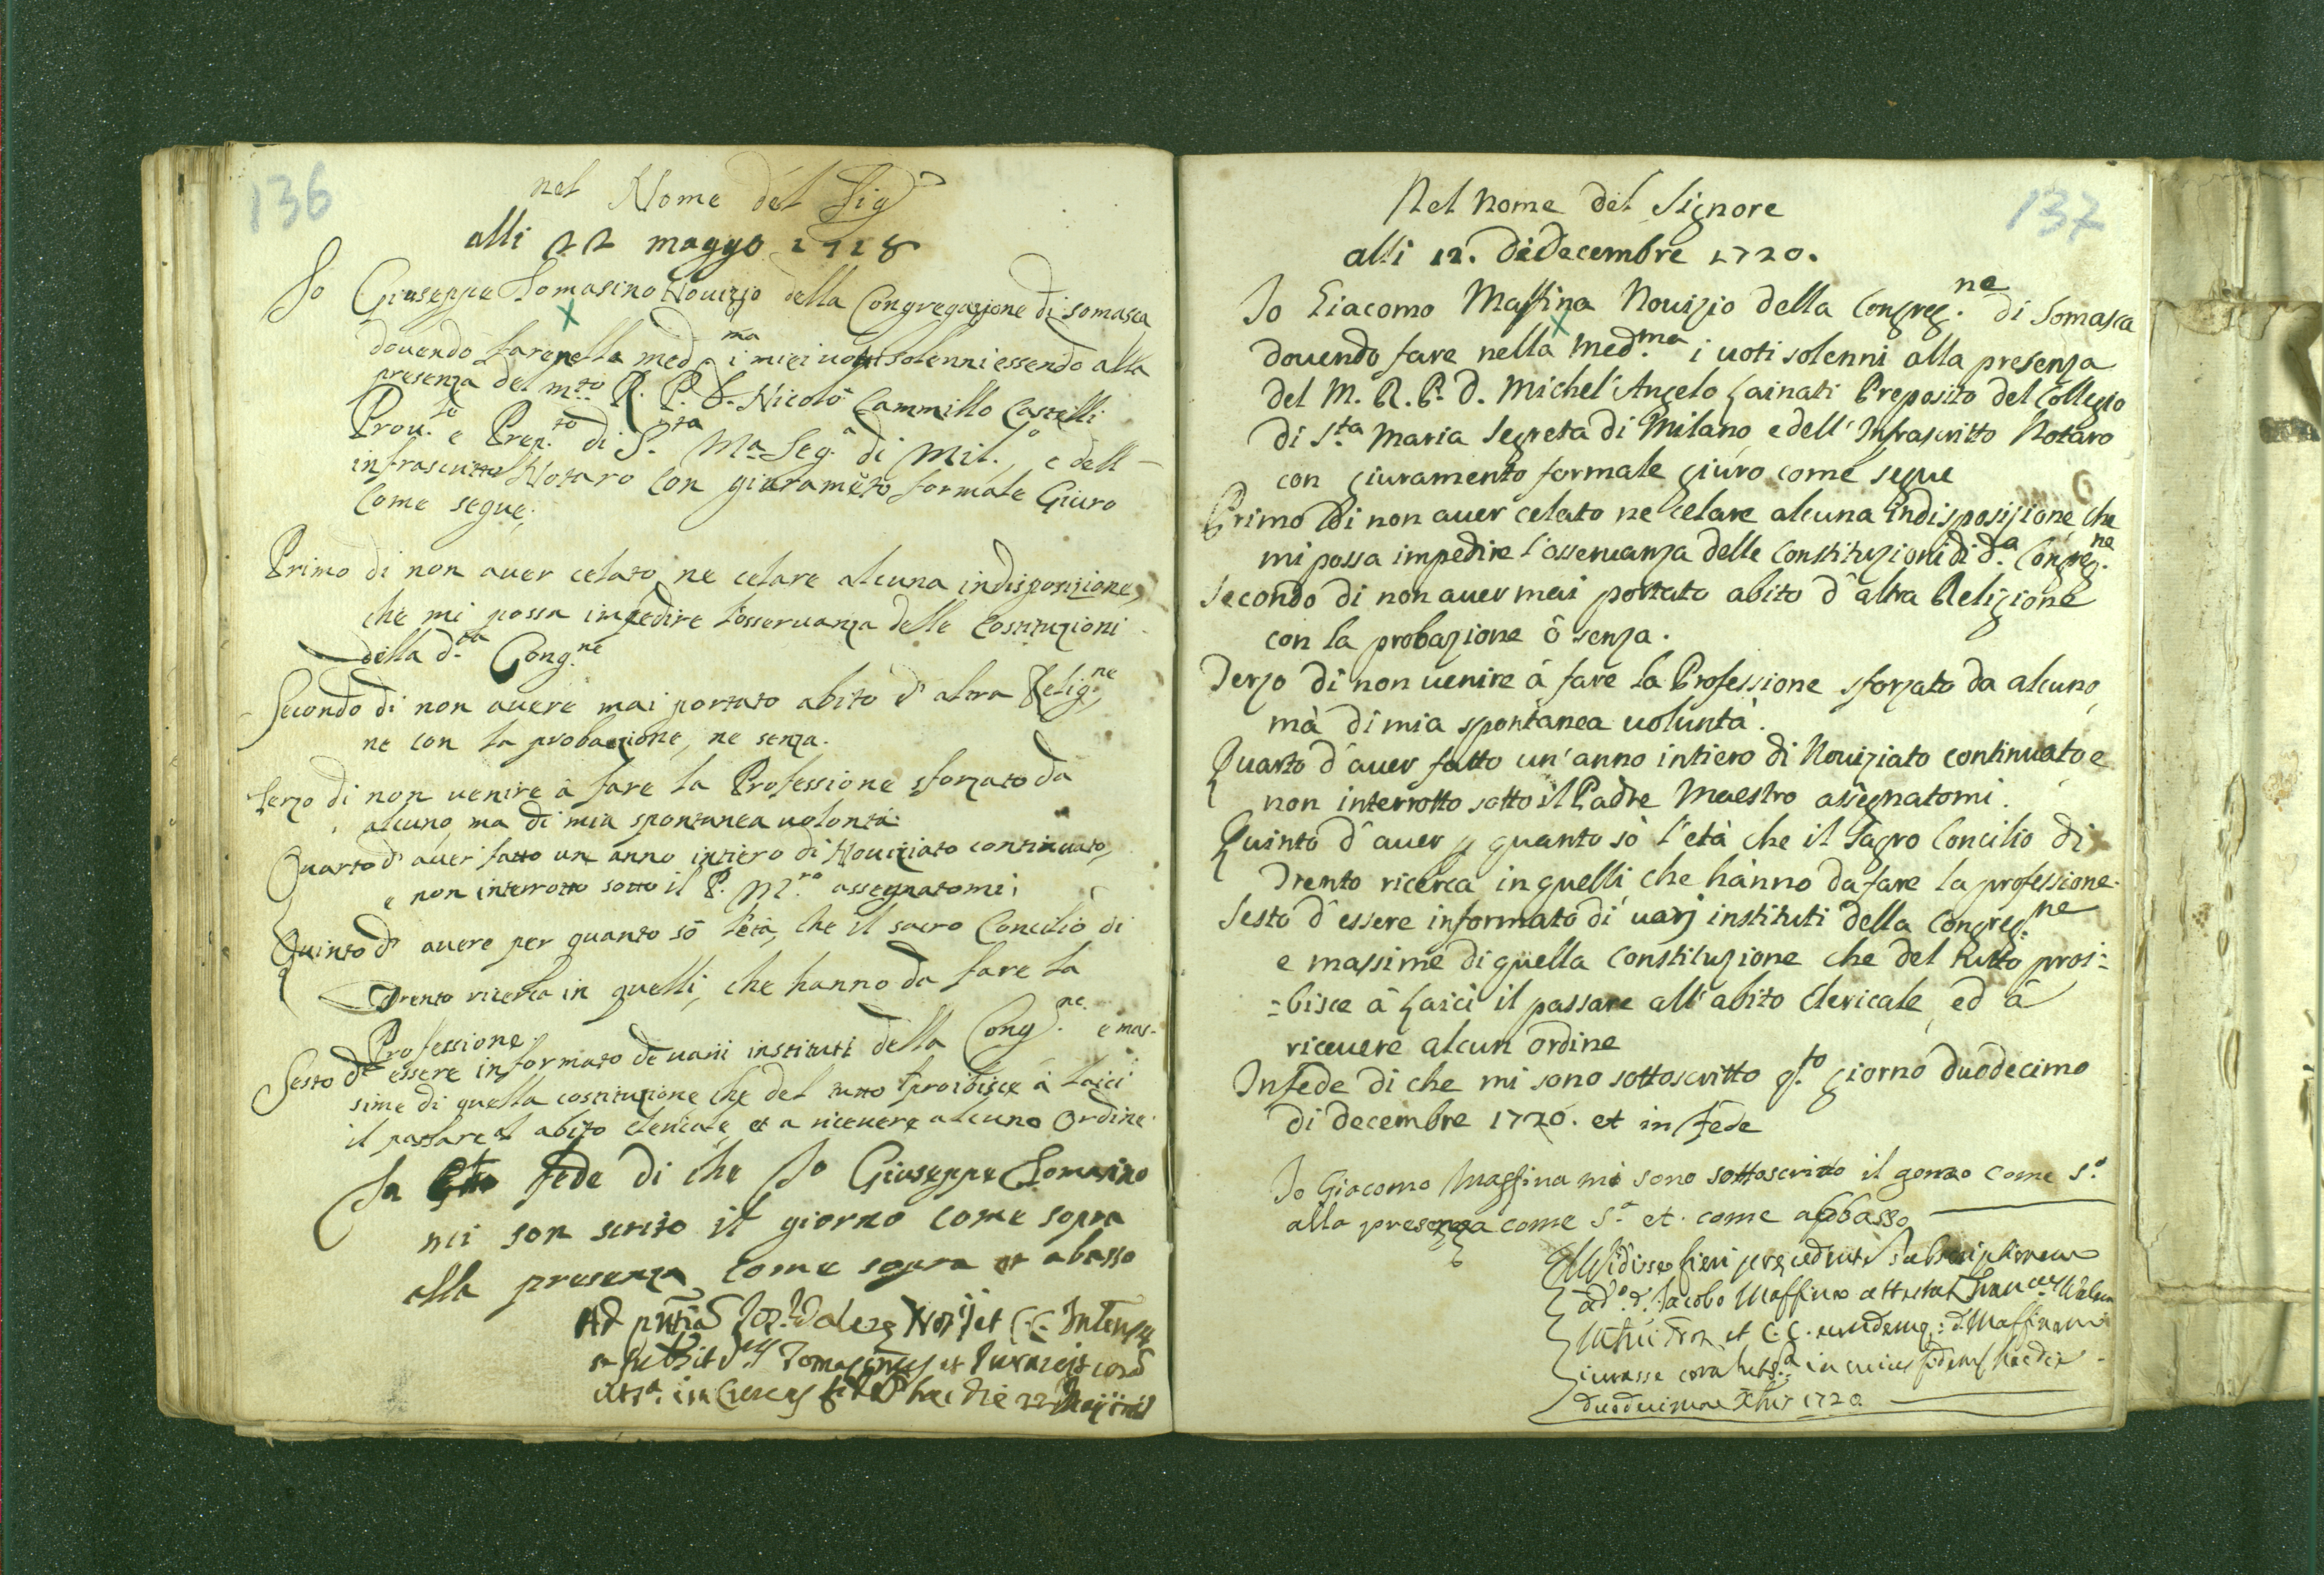 136
nel Nome del Sig.
alli 22 maggo 1718
Io Giuseppe Tomasino Novizio della Congregazione di somasca
dovendo fare nella med.ma i miei voti solenni essendo alla
presenza del m.to R. P. D. Nicolò Cammillo Castelli
Prou.le e Prep.to di S.ta Ma Seg.a di Mil.o, e dell
infrascritto Notaro con giuramēto formale Giuro
come segue;
Primo di non auer celato, ne celare alcuna indisposizione,
che mi possa impedire l'osseruanza delle Costituzioni
della d.ta Cong.ne
Secondo di non auere mai portato abito d' altra Relig.ne,
ne con la probazione, ne senza.
Terzo di non uenire à fare la Professione sforzato da
alcuno, ma di mia spontanea uolontà.
Quarto d' auer fatto un anno intiero di Nouiziato continuato,
e non interrotto sotto il P. M.ro assegnatomi;
Quinto d' auere per quanto sò l'età, che il sacro Concilio di
Trento ricerca in quelli, che hanno da fare la
Professione.
Sesto d' essere informato de uarii instituti della Cong.ne e mas-
sime di quella costituzione che del tutto proibisce à laici
il passare al abito clericale et a riceuere alcuno Ordine.
In fede di che Io Giuseppe Tomasino
mi son scrito il giorno come sopra
alla presenza come sopra et abasso
137
Nel Nome del Signore
alli 12. di Decembre 1720.
Io Giacomo Massina Nouizio della Congreg.ne di Somasca
douendo fare nella Med.ma i uoti solenni alla presenza
del M. R. P. D. Michel'Angelo Zainati Preposito del Collegio
di S.ta Maria Segreta di Milano, e dell'Infrascritto Notaro
con giuramento formale giuro come segue
Primo di non auer celato ne celare alcuna indisposizione che
mi possa impedire l'osseruanza delle Constituzioni di d.a Congreg.ne
Secondo di non auer mai portato abito d'altra Religione
con la probazione ò senza.
Terzo di non uenire à fare la Professione sforzato da alcuno,
mà di mia spontanea uoluntà.
Quarto d'auer fatto un'anno intiero di Nouiziato continuato e
non interrotto sotto il Padre Maestro assegnatomi.
Quinto d'auer p quanto sò l'età che il Sagro Concilio di
Trento ricerca in quelli che hànno da fare la professione.
Sesto d'essere informato di uarj instituti della Congreg.ne
e massime di quella Constituzione che del tutto proi:
=bisce à Laici il passare all'abito Clericale, ed à
riceuere alcun ordine
In fede di che mi sono sottoscritto q.to giorno duodecimo
di decembre 1720. et in fede
Io Giacomo Massina mi sono sottoscritto il gorno come s.a
alla presenza come s.a et come abbasso
duodecima Xbris 1720